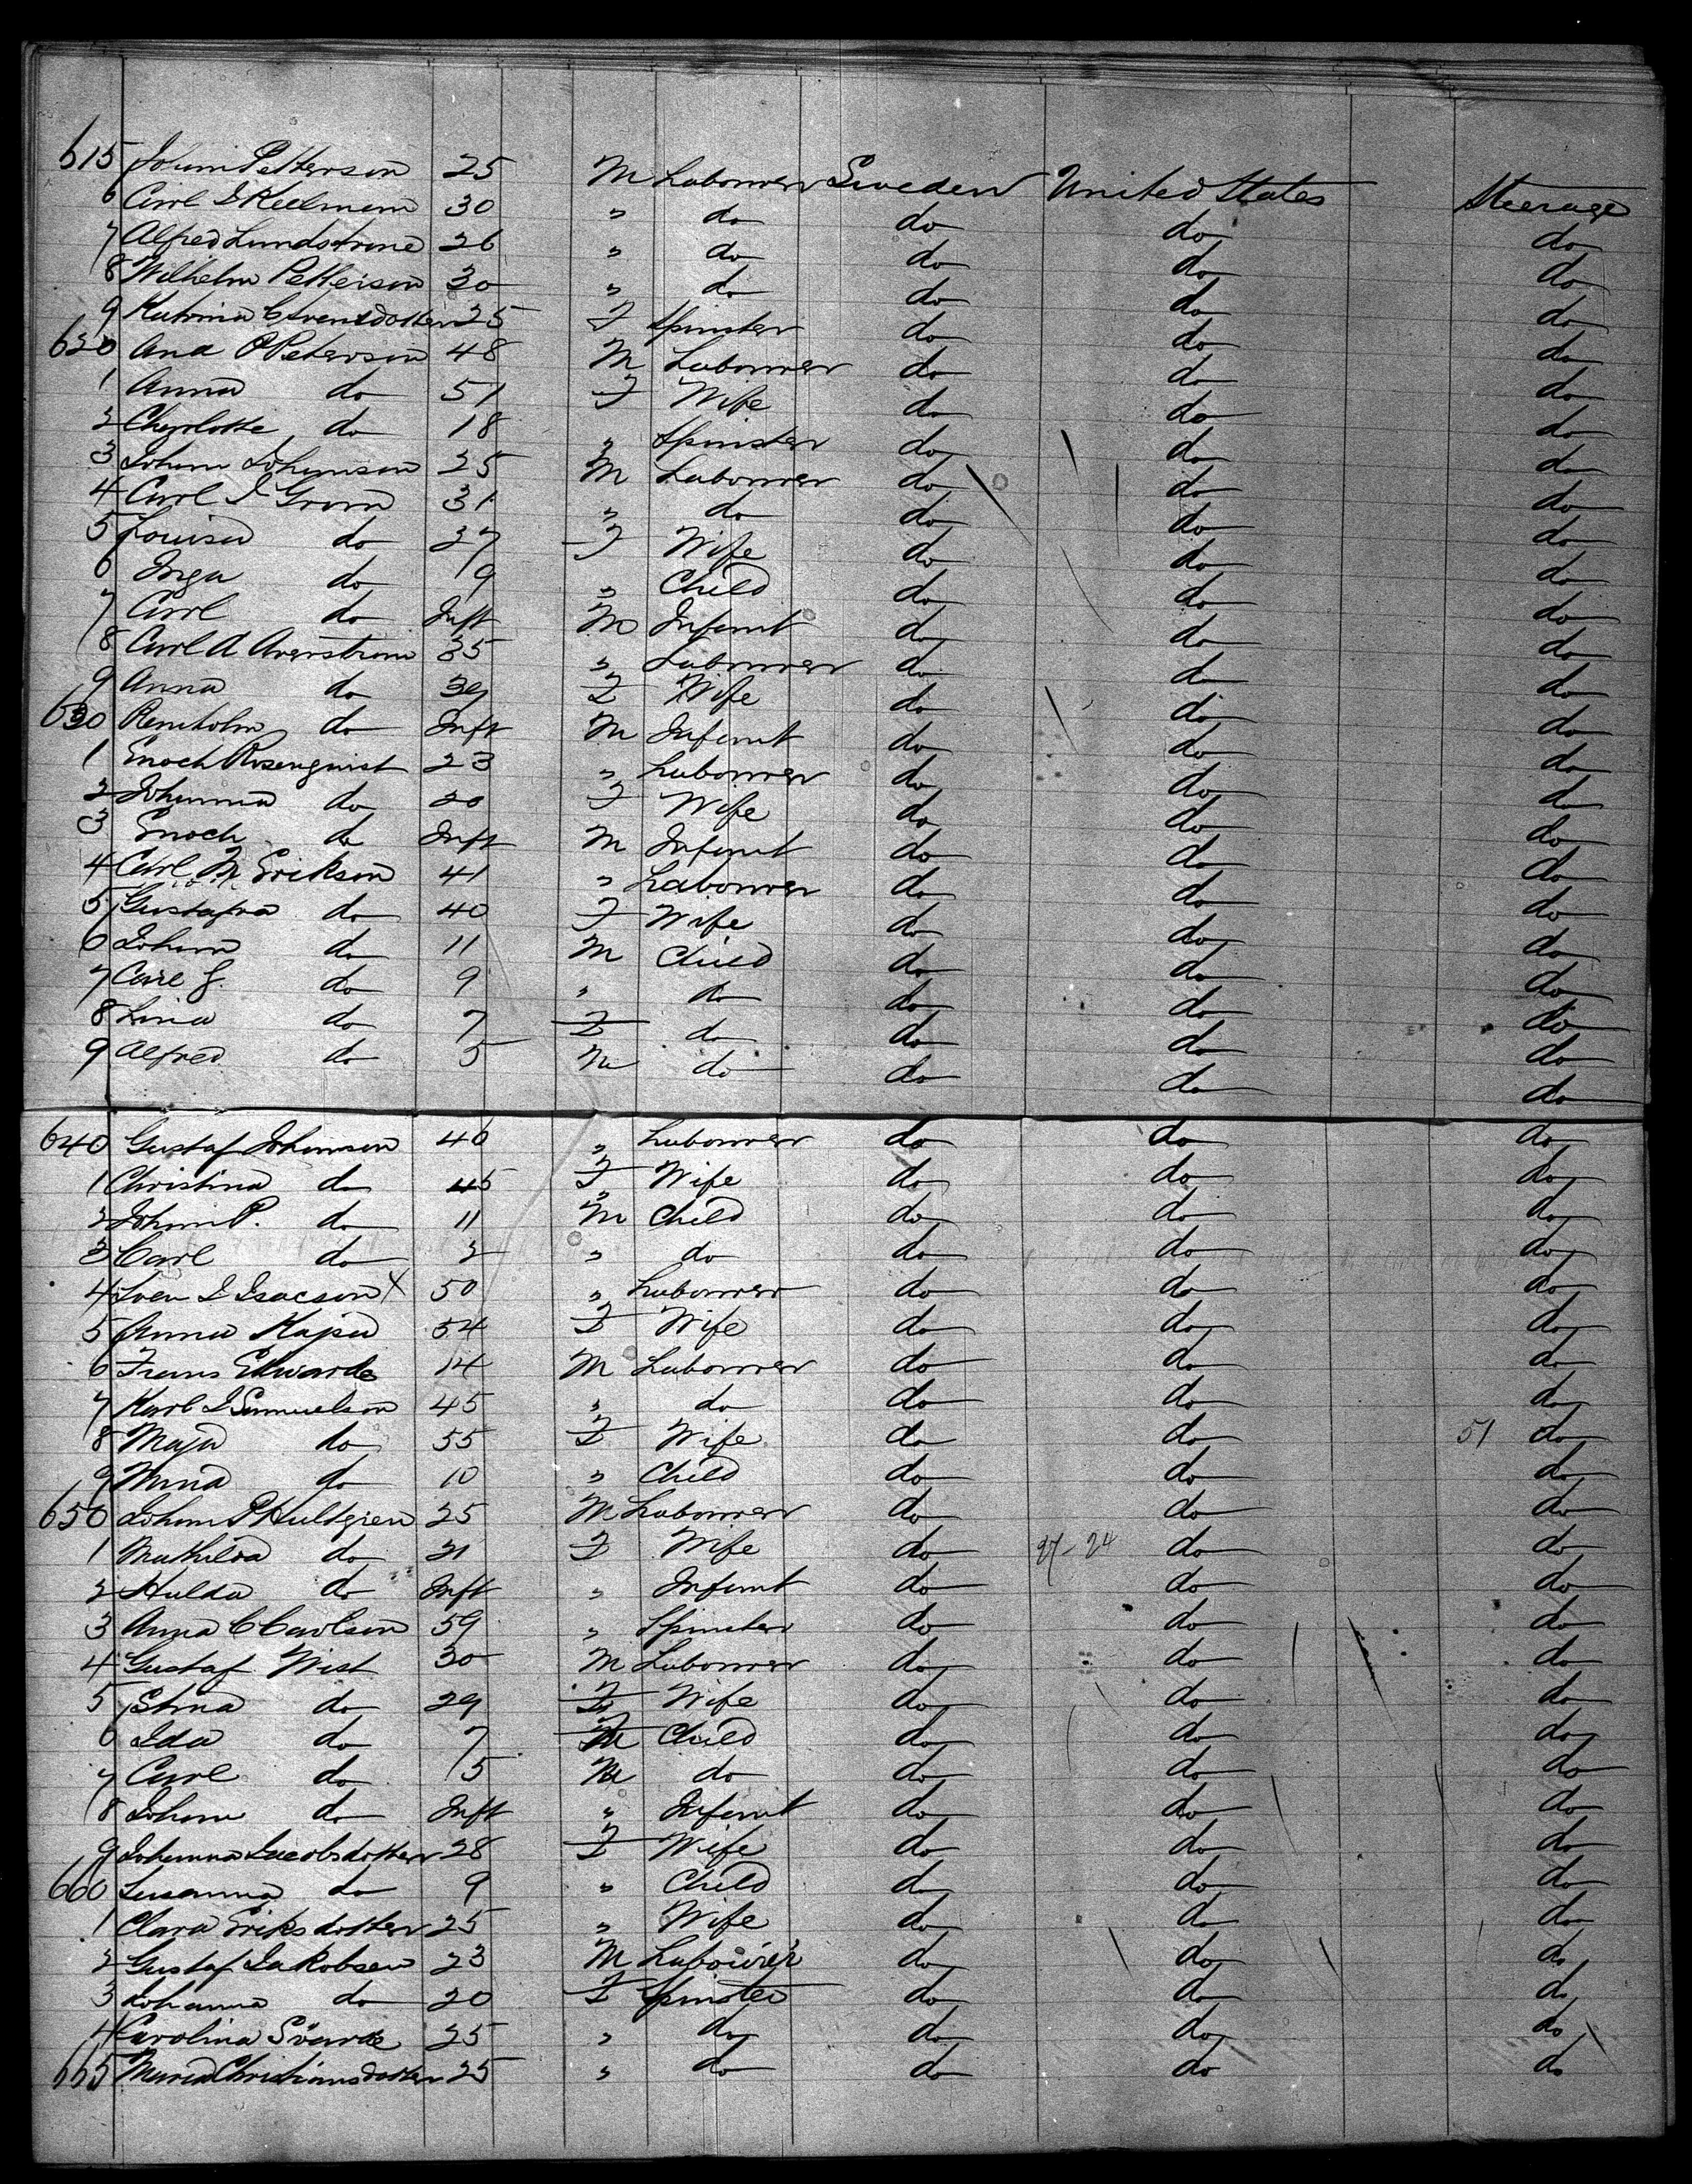 615 Johan Petterson 25 M Labourer Sweden United States Steerage
6 Carl 30 " do do do do
7 Alfred Lundstrom 26 " do do do do
8 Wilhelm Petterson 30 " do do do do
9 Katrina C Svensdotter 25 F Spinster do do do
620 And P Peterson 48 M Labourer do do do
1 Anna do 51 F Wife do do do
2 Charlotte do 18 " Spinster do do do
3 Johan Johanson 25 M Labourer do do do
4 Carl J Gran 31 " do do do do
5 Louisa do 27 F Wife do do do
6 Inga do 9 " Child do do do
7 Carl do Inft M Infant do do do
8 Carl A 35 " Labourer do do do
9 Anna do 39 F Wife do do do
630 Reinholm do Inft M Infant do do do
1 Enoch Rosenquist 23 " Labourer do do do
2 Johanna do 20 F Wife do do do
3 Enoch do Inft M Infant do do do
4 Carl M Erikson 41 " Labourer do do do
5 Gustafva do 40 F Wife do do do
6 Johan do 11 M Child do do do
7 Carl G. do 9 " do do do do
8 Lina do 7 F do do do do
9 Alfred do 5 M do do do do
640 Gustaf Johanson 46 " Labourer do do do
1 Christina do 45 F Wife do do do
2 Johan P. do 11 M Child do do do
3 Carl do 2 " do do do do
4 Sven J Isacson X 50 " Labourer do do do
5 Anna Kajsa 54 F Wife do do do
6 Frans Edwards 14 M Labourer do do do
7 Karl J Samuelson 45 " do do do do
8 Maja do 55 F Wife do do 51 do
9 Mina do 10 " Child do do do
650 Johan P Hultgren 25 M Labourer do do do
1 Mathilda do 21 F Wife do 24 do do
2 Hulda do Inft " Infant do do do
3 Anna C Carlson 59 " Spinster do do do
4 Gustaf Wist 30 M Labourer do do do
5 Stina do 29 F Wife do do do
6 Ida do 7 F Child do do do
7 Carl do 5 M do do do do
8 Johan do Inft " Infant do do do
9 Johanna Jacobsdotter 28 F Wife do do do
660 Susanna do 9 " Child do do do
1 Clara Eriksdotter 25 " Wife do do do
2 Gustaf Jakobsen 23 M Labourer do do do
3 Johanna do 20 F Spinster do do do
4 Carolina Svärde 25 " do do do do
665 Maria Christiansdotter 25 " do do do do